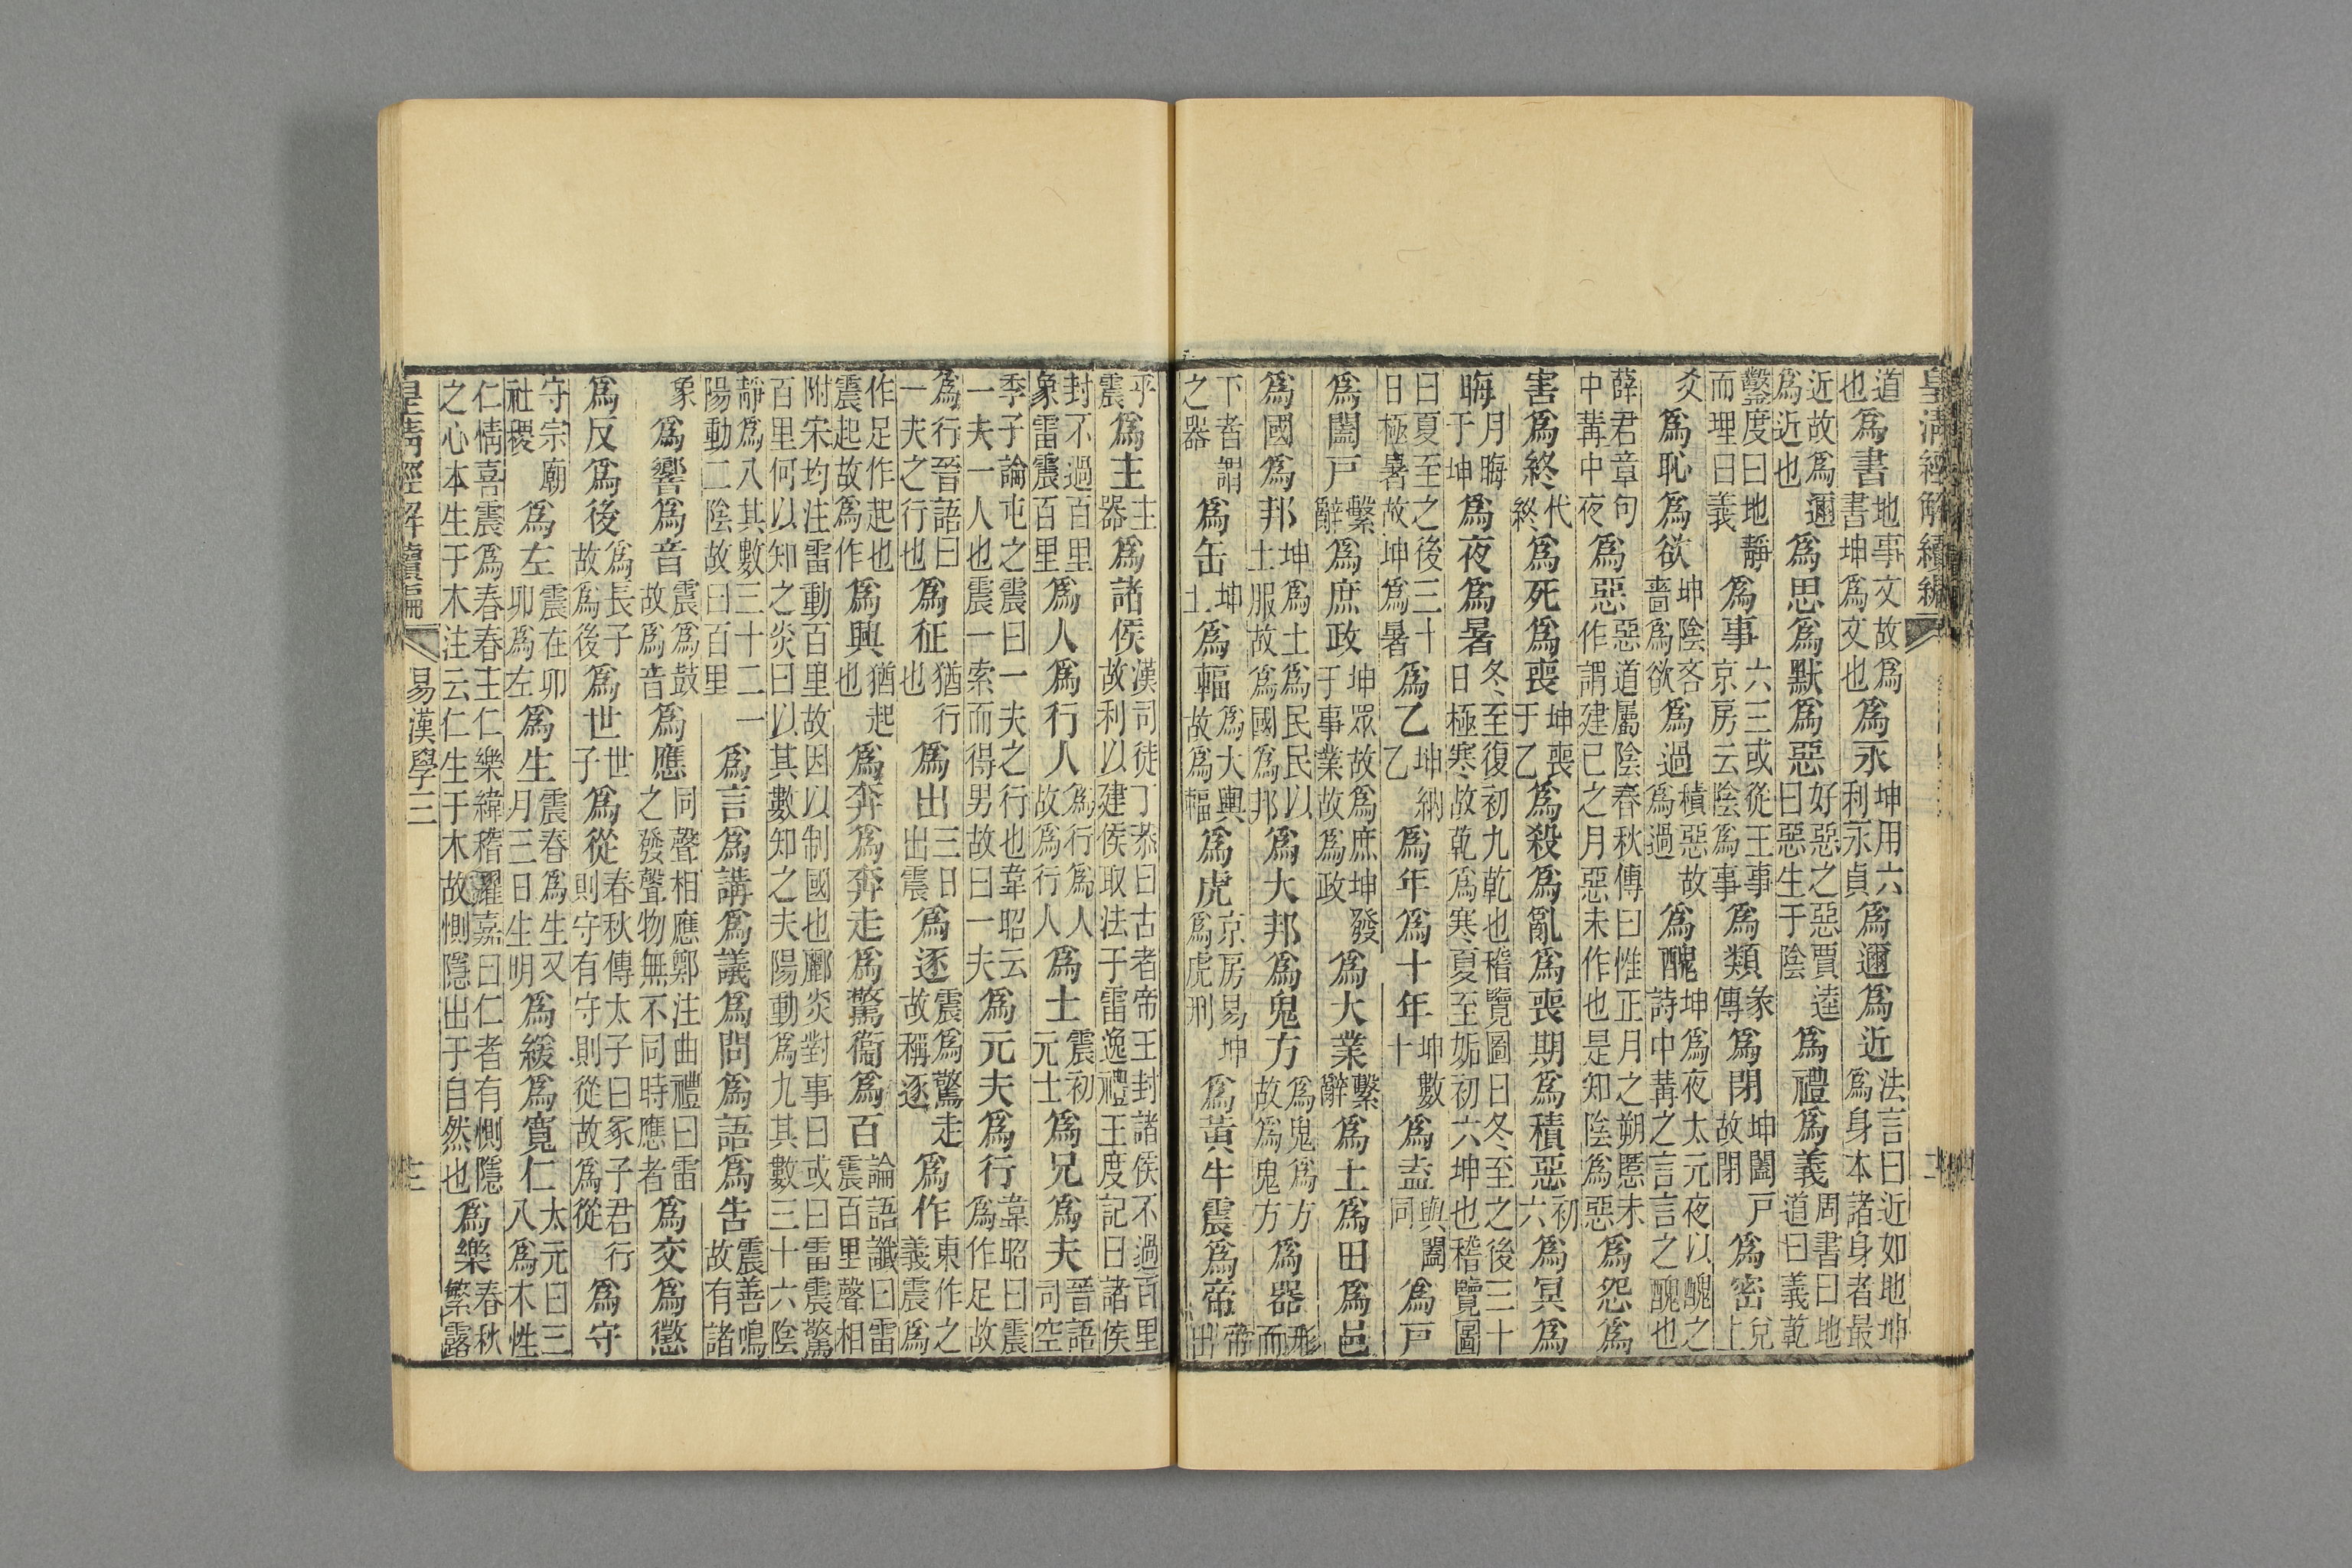 皇清經解續編
道也爲書地事文故爲書坤爲文也爲永坤用六利永貞爲邇爲近法言曰近如地坤爲身本諸身者最
近故爲邇爲近也爲思爲默爲惡好惡之惡賈逵曰惡生于陰爲禮爲義周書曰地道曰義乾
鑿度曰地靜而理曰義爲事六三或從王事京房云陰爲事爲類彖傳爲閉坤闔戶故閉爲密上兌
爻爲恥爲欲坤陰吝嗇爲欲爲過積惡故爲過爲醜坤爲夜太元夜以醜之詩中冓之言言之醜也
薛君章句中冓中夜爲惡惡道屬陰春秋傳曰惟正月之朔慝未作謂建巳之月惡未作也是知陰爲惡爲怨爲
害爲終代終爲死爲喪坤喪于乙爲殺爲亂爲喪期爲積惡初六爲冥爲
晦月晦于坤爲夜爲暑冬至復初九乾也稽覽圖曰冬至之後三十日極寒故乾爲寒夏至姤初六坤也稽覽圖
曰夏至之後三十日極暑故坤爲暑爲乙坤納乙爲年爲十年坤數十爲盍與闔同爲戸
爲闔戸繫辭爲庶政坤眾故爲庶坤發于事業故爲政爲大業繫辭爲土爲田爲邑
爲國爲邦坤爲土爲民民以土服故爲國爲邦爲大邦爲鬼方爲鬼爲方故爲鬼方爲器形而
下者謂之器爲缶坤土爲輻爲大輿故爲輻爲虎京房易坤爲虎刑爲黃牛震爲帝帝出
乎震爲主主器爲諸侯漢司徒丁恭曰古者帝王封諸侯不過百里故利以建侯取法于雷逸禮王度記曰諸侯
封不過百里象雷震百里爲人爲行人爲行爲人故爲行人爲士震初元士爲兄爲夫晉語司空
季子論屯之震曰一夫之行也韋昭云一夫一人也震一索而得男故曰一夫爲元夫爲行韋昭曰震爲作足故
爲行晉語曰一夫之行也爲征猶行也爲出三日出震爲逐震爲驚走故稱逐爲作東作之義震爲
作足作起也震起故爲作爲興猶起也爲奔爲奔走爲驚衞爲百論語讖曰雷震百里聲相
附宋均注雷動百里故因以制國也酈炎對事曰或曰雷震驚百里何以知之炎曰以其數知之夫陽動爲九其數三十六陰
靜爲八其數三十二一陽動二陰故曰百里爲言爲講爲議爲問爲語爲告震善鳴故有諸
象爲響爲音震爲鼓故爲音爲應同聲相應鄭注曲禮曰雷之發聲物無不同時應者爲交爲懲
爲反爲後爲長子故爲後爲世世子爲從春秋傳太子曰冢子君行則守有守則從故爲從爲守
守宗廟社稷爲左震在卯卯爲左爲生震春爲生又月三日生明爲緩爲寬仁太元曰三八爲木性
仁情喜震爲春春主仁樂緯稽耀嘉曰仁者有惻隱之心本生于木注云仁生于木故惻隱出于自然也爲樂春秋繁露
皇清經解續編
易漢學三